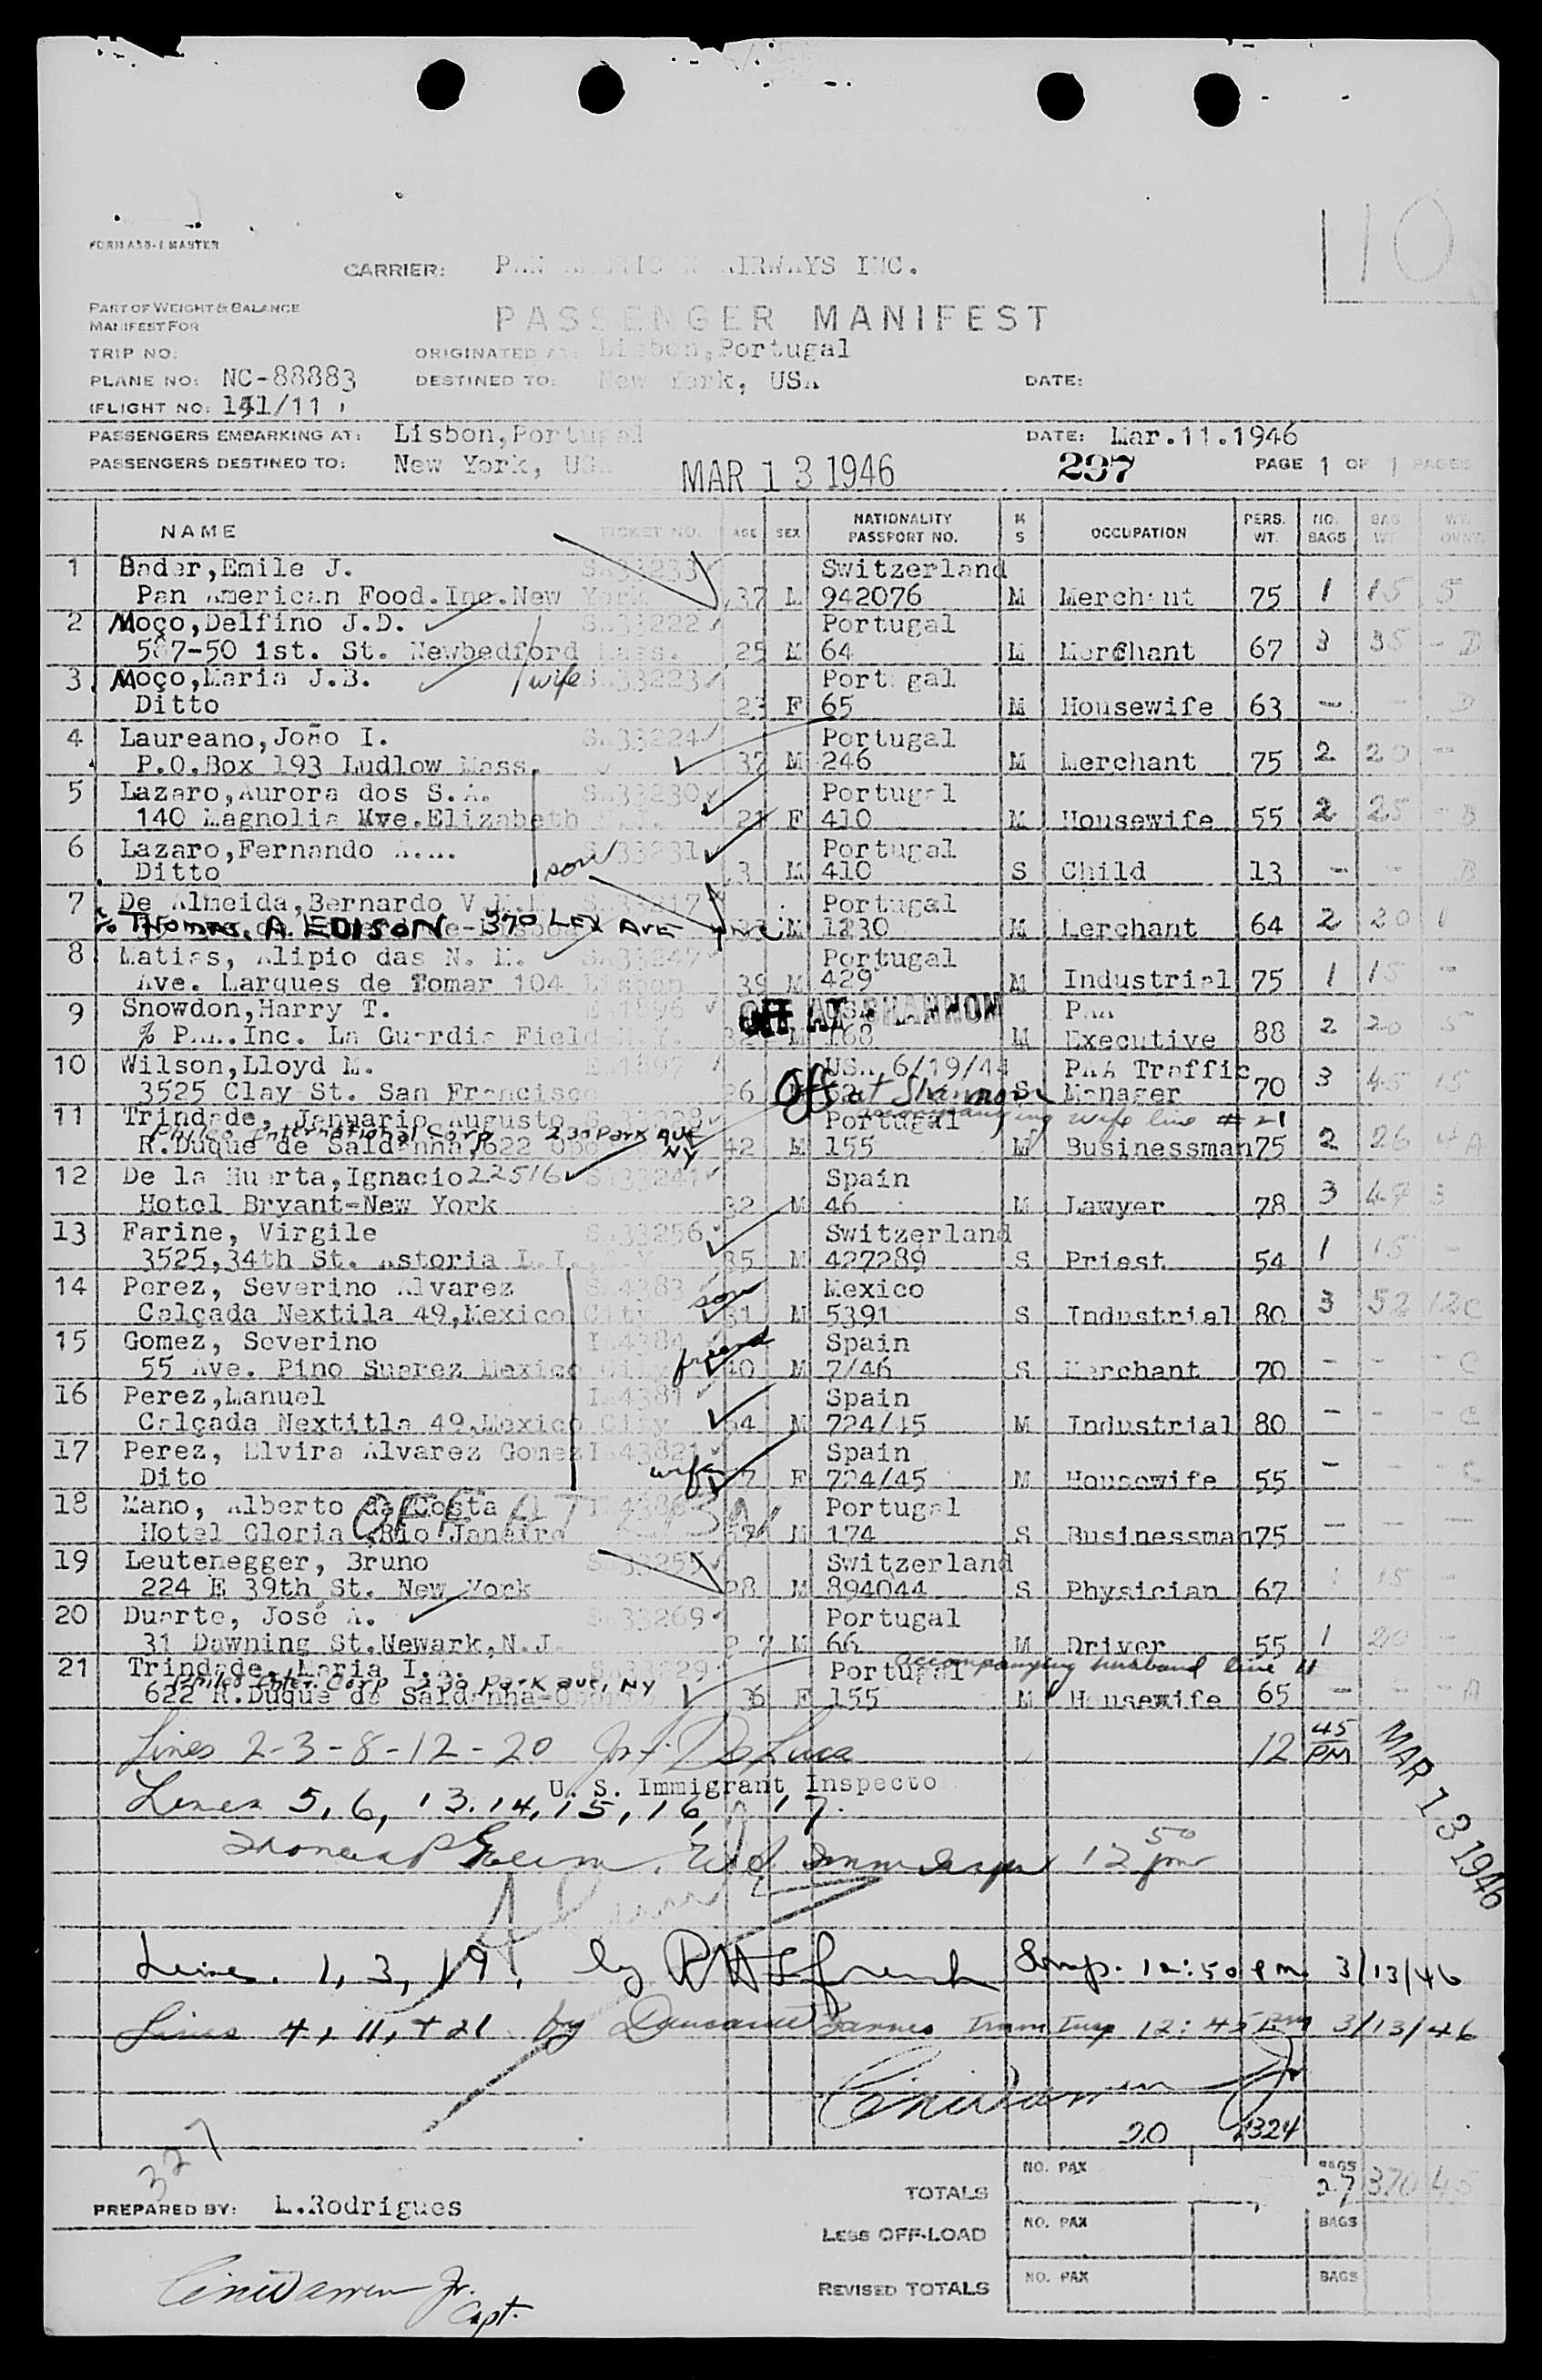 10
FORM ASB-1 MASTER
CARRIER: PAN AMERICAN AIRWAYS INC.
PART OF WEIGHT & BALANCE
MANIFEST FOR
PASSENGER MANIFEST
TRIP NO: ORIGINATED AT: Lisbon,Portugal
PLANE NO: NC-88883 DESTINED TO: New York, USA DATE:
FLIGHT NO: 141/11
PASSENGERS EMBARKING AT: Lisbon,Portugal DATE: Mar.11.1946
PASSENGERS DESTINED TO: New York, USA MAR 13 1946 297 PAGE 1 OF 1 PAGES
NAME TICKET NO. AGE SEX NATIONALITY PASSPORT NO. M S OCCUPATION PERS. WT. NO. BAGS BAG WT.
1 Bader,Emile J. SA33233 Switzerland
Pan American Food.Inc.New York 37 M 942076 M Merchant 75 1 15 5
2 Moço,Delfino J.D. SA33222 Portugal
587-50 1st. St. Newbedford Mass. 25 M 64 M Merchant 67 3 35 - D
3 Moço,Maria J.B. wife SA33223 Portugal
Ditto 23 F 65 M Housewife 63 - - D
4 Laureano,João I. SA33224 Portugal
P.O.Box 193 Ludlow Mass. 37 M 246 M Merchant 75 2 20 -
5 Lazaro,Aurora dos S.A. SA33230 Portugal
140 Magnolia Ave.Elizabeth 21 F 410 M Housewife 55 2 25 - B
6 Lazaro,Fernando A.A. son SA33231 Portugal
Ditto 3 M 410 S Child 13 - - B
7 De Almeida,Bernardo V.M.M. SA33217 Portugal
% THOMAS. A. EDISON - 370 LEX AVE M 1230 M Merchant 64 2 20 1
8 Matias, Alipio das N. M. SA33247 Portugal
Ave. Marques de Tomar 104 Lisbon 39 M 429 M Industrial 75 1 15 -
9 Snowdon,Harry T. EA1896 OFF AT SHANNON PAA
% PAA.Inc. La Guardia Field-N.Y. 32 M 168 M Executive 88 2 20 5
10 Wilson,Lloyd M. EA1897 USA 6/19/44 PAA Traffic
3525 Clay St. San Francisco 26 Off at Shannon S Manager 70 3 45 15
11 Trindade, Januario Augusto SA33228 Portugal accompanying wife line # 21
Philco International Corp 230 Park Ave NY
R.Duque de Saldanha,622 Oporto 42 M 155 M Businessman 75 2 26 4 A
12 De la Huerta,Ignacio 22516 SA33241 Spain
Hotel Bryant-New York 32 M 46 M Lawyer 78 3 47 3
13 Farine, Virgile SA33256 Switzerland
3525,34th St. Astoria L.I. 35 M 427289 S Priest 54 1 15 -
14 Perez, Severino Alvarez son Mexico
Calçada Nextila 49,Mexico City 31 M 5391 S Industrial 80 3 52 12 C
15 Gomez, Severino friend Spain
55 Ave. Pino Suarez Mexico City 40 M 7/46 S Merchant 70 - - - C
16 Perez,Manuel Spain
Calçada Nextitla 49,Mexico City 64 M 724/45 M Industrial 80 - - - C
17 Perez, Elvira Alvarez Gomez wife Spain
Dito F 724/45 M Housewife 55 - - - C
18 Mano, Alberto da Costa OFF AT Portugal
Hotel Gloria ,Rio Janeiro M 174 S Businessman 75 - - -
19 Leutenegger, Bruno SA33255 Switzerland
224 E 39th St. New York 28 M 894044 S Physician 67 1 15 -
20 Duarte, José A. SA33269 Portugal
31 Dawning St.Newark,N.J. 27 M 66 M Driver 55 1 20 -
21 Trindade, Maria I.A. SA33229 Portugal accompanying husband line 11
Philco Inter. Corp 230 Park ave, NY
622 R.Duque de Saldanha-Oporto 36 F 155 M Housewife 65 - - - A
Lines 2-3-8-12-20 De Luca 12 45 PM
U. S. Immigrant Inspector MAR 13 1946
Lines 5, 6, 13. 14, 15, 16, 17.
12 50 pm
Lines. 1, 3, 19, by French Insp. 12:50 pm 3/13/46
Lines 4, 11, + 21 by Barnes Imm Insp 12:45 PM 3/13/46
20 1324
327
TOTALS NO. PAX BAGS 27 370 45
PREPARED BY: L.Rodrigues
LESS OFF-LOAD NO. PAX BAGS
REVISED TOTALS NO. PAX BAGS
Jr.
Capt.